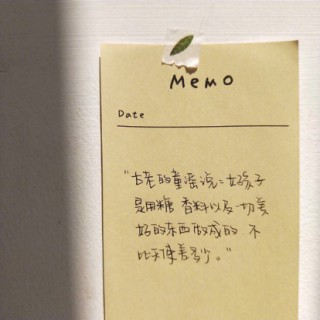 Memo
Date
"古老的童谣说：好孩子
是用糖 香料以及一切美
好的东西做成的 不
比天使差多少。"